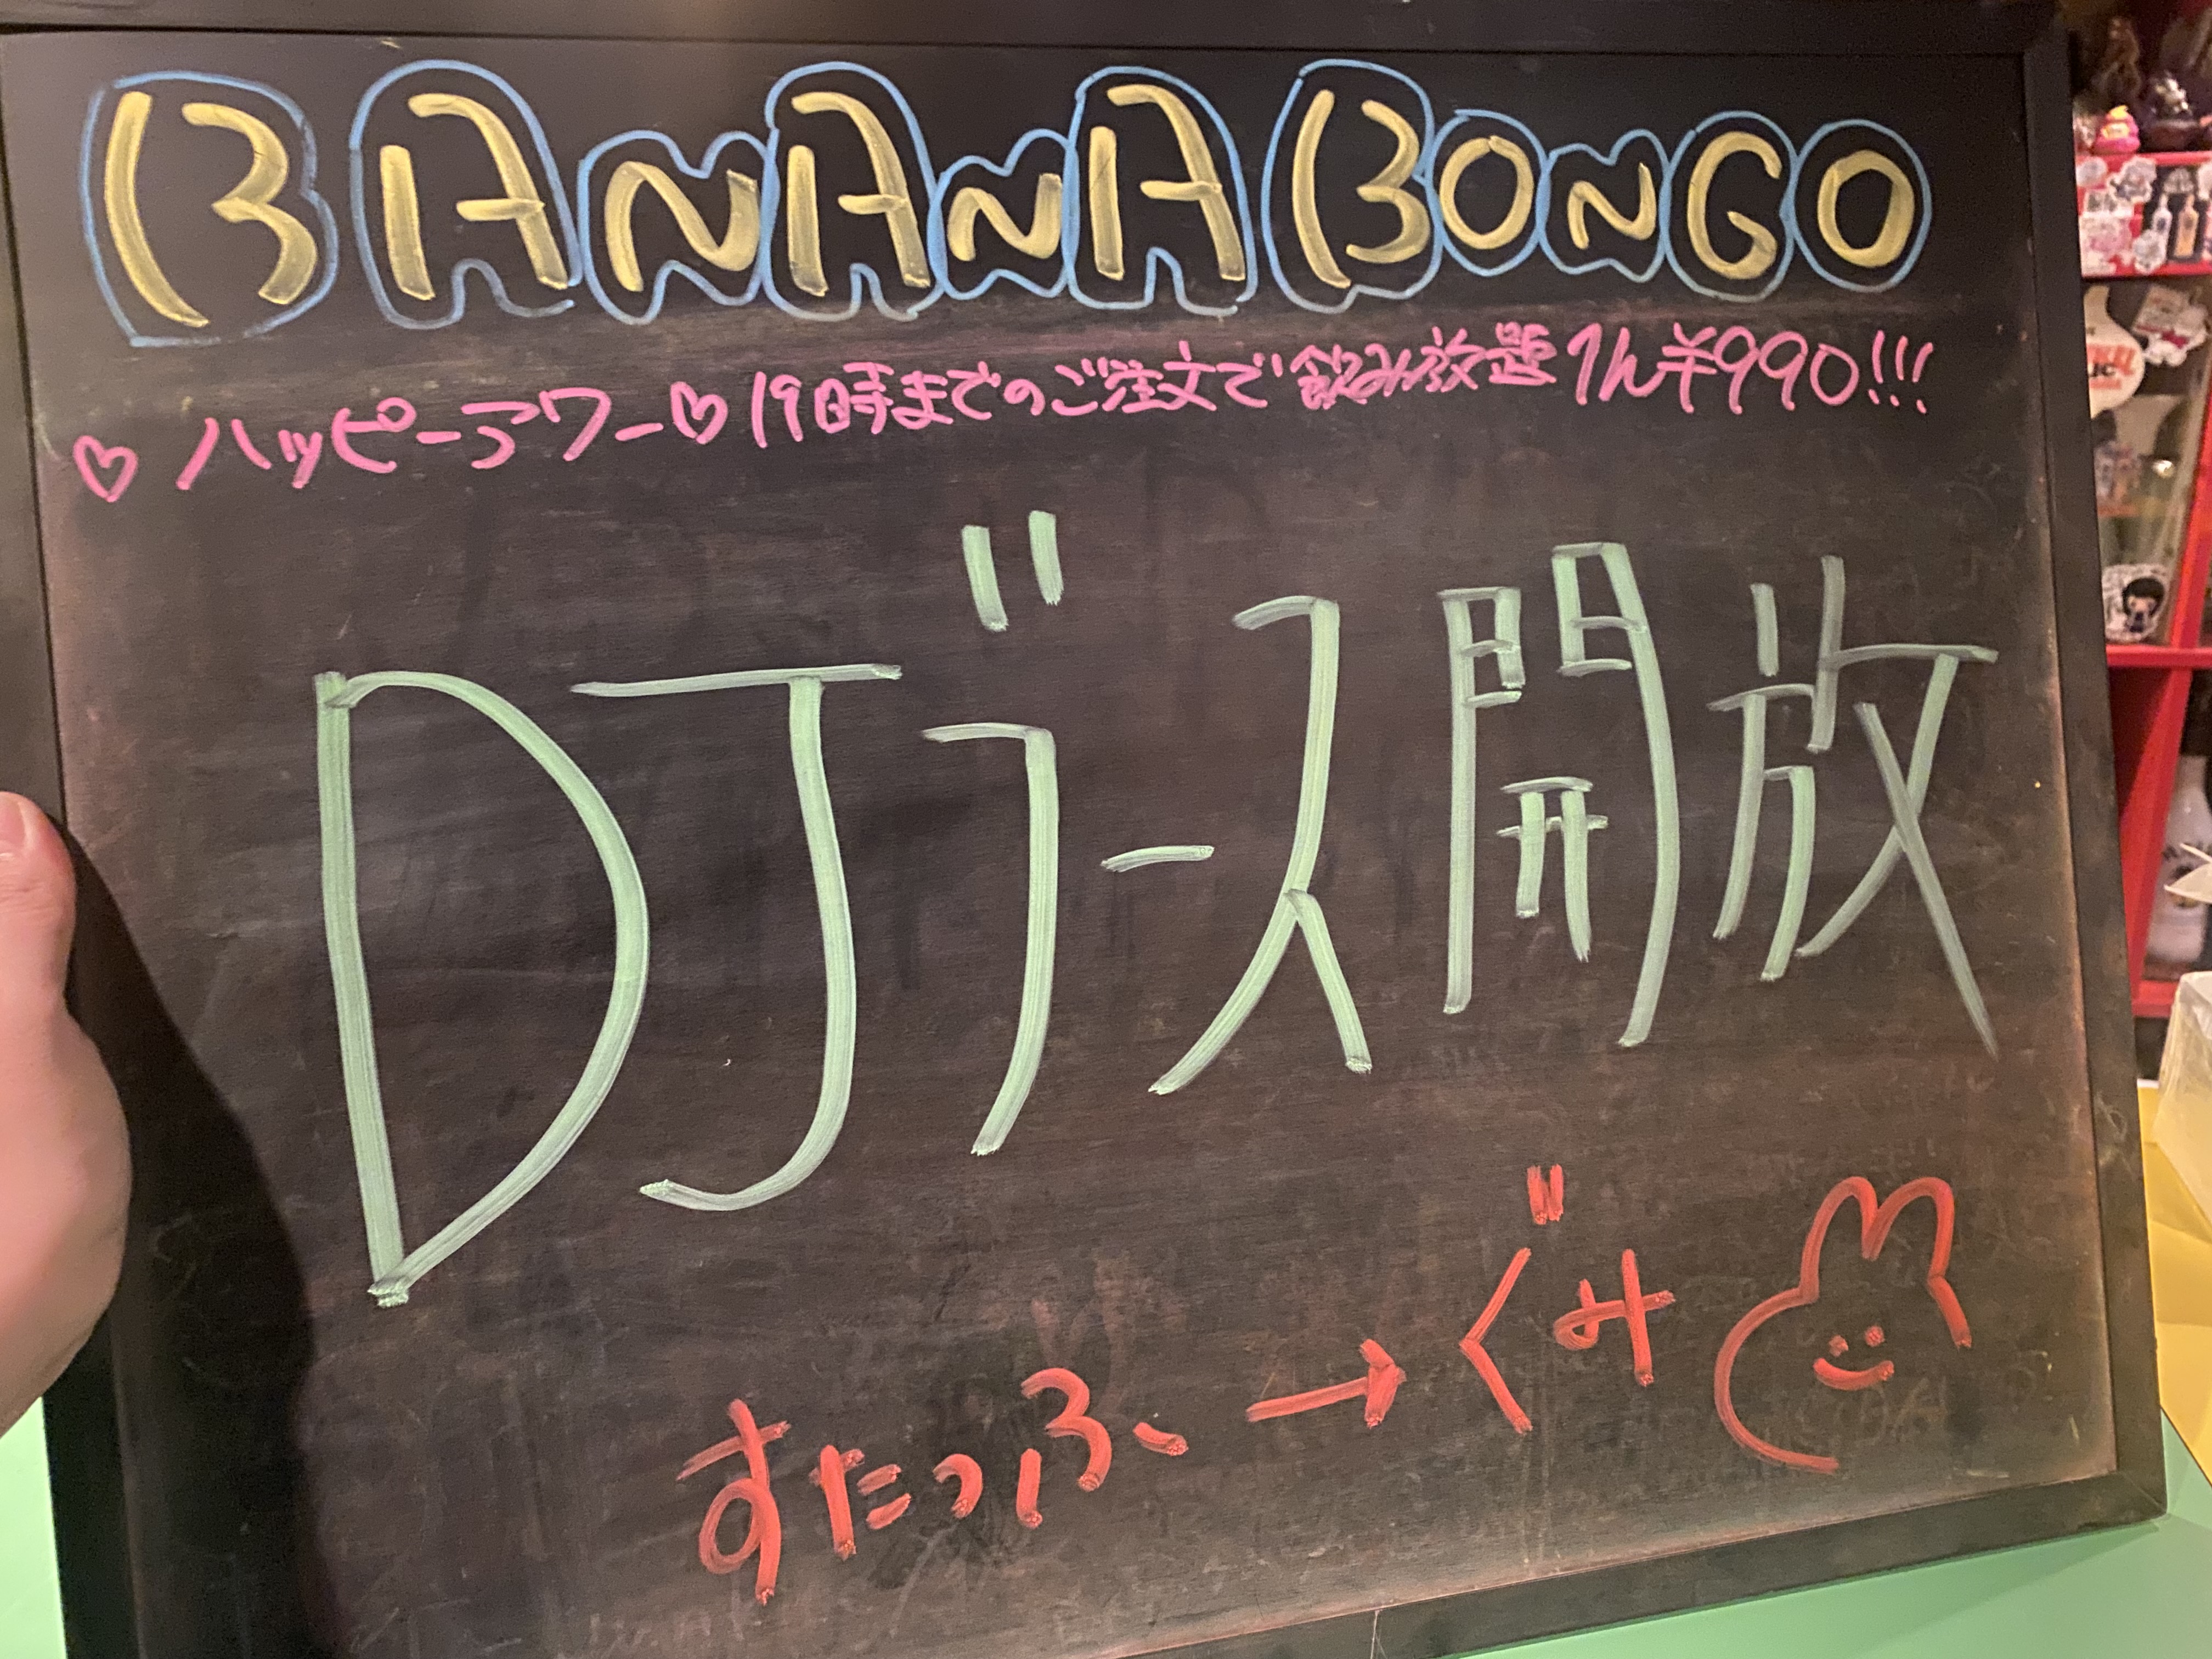 BANANA BONGO
♡ハッピーアワー♡19時までのご注文で飲み放題1h¥990!!!
DJブース開放
すたっふ→ぐみ